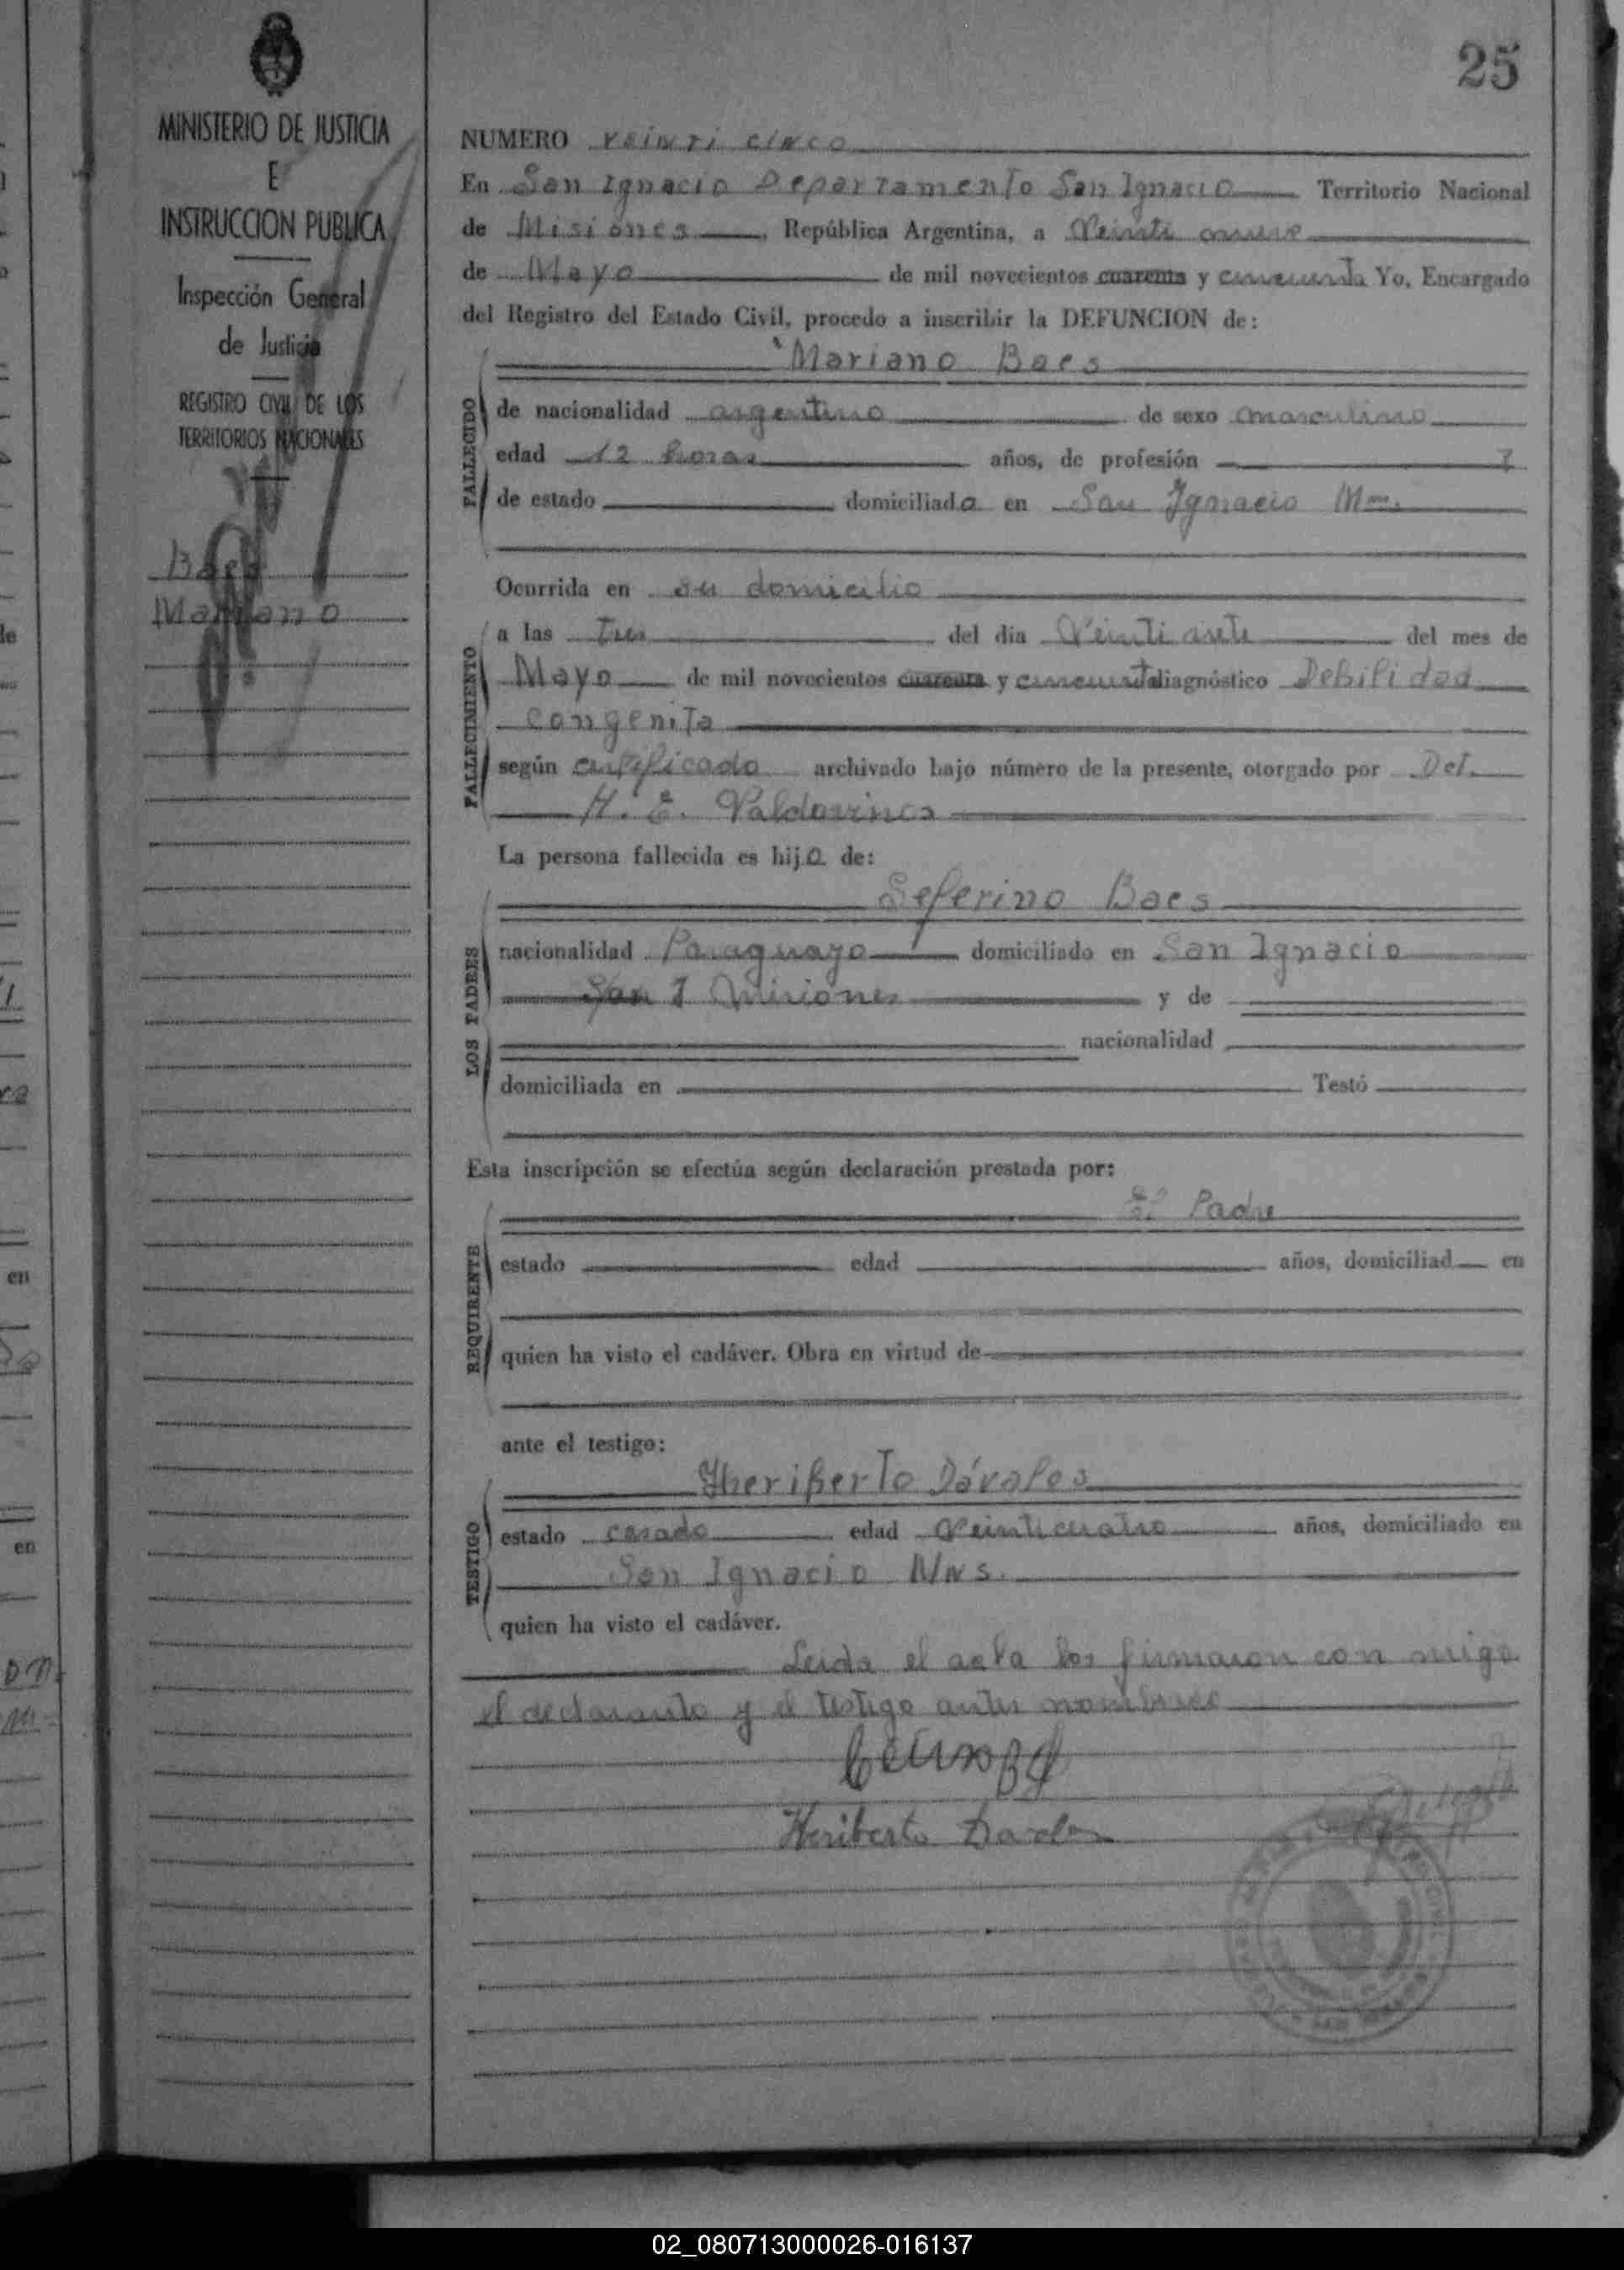 25
MINISTERIO DE JUSTICIA
E
INSTRUCCION PUBLICA
Inspección General
de Justicia
REGISTRO CIVIL DE LOS
TERRITORIOS NACIONALES
Baes
Mariano
NUMERO veinti cinco
En San Ignacio Departamento San Ignacio Territorio Nacional
de Misiones, República Argentina, a Veinti nueve
de Mayo de mil novecientos cuarenta y cincuenta Yo, Encargado
del Registro del Estado Civil, procedo a inscribir la DEFUNCION de:
Mariano Baes
FALLECIDO
de nacionalidad argentino de sexo masculino
edad 12 horas años, de profesión
de estado domiciliado en San Ignacio Mnes.
Ocurrida en su domicilio
FALLECIMIENTO
a las Tres del día Veinti siete del mes de
Mayo de mil novecientos cuarenta y cincuenta diagnóstico Debilidad
congenita
según certificado archivado bajo número de la presente, otorgado por Det.
H. E. Valdovinos
La persona fallecida es hijo de:
Seferino Baes
LOS PADRES
nacionalidad Paraguayo domiciliado en San Ignacio
Misiones y de
nacionalidad
domiciliada en Testó
Esta inscripción se efectúa según declaración prestada por:
El Padre
REQUIRENTE
estado edad años, domiciliad en
quien ha visto el cadáver. Obra en virtud de
ante el testigo:
Hheriberto Dávalos
TESTIGO
estado casado edad Veinticuatro años, domiciliado en
San Ignacio Mns.
quien ha visto el cadáver.
Leida el acta los firmaron con migo
el declarante y el testigo antes nombrado
Heriberto Davalos
02_080713000026-016137